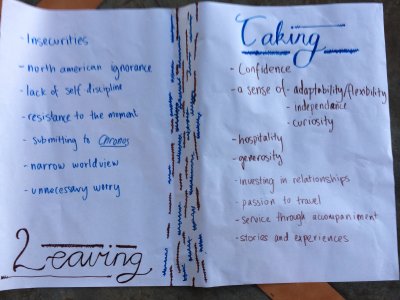 - Insecurities
- north american ignorance
- lack of self discipline
- resistance to the moment
- submitting to Chronos
- narrow worldview
- unnecessary worry
Leaving
Taking
- Confidence
- a sense of - adaptability/flexibility
- independance
- curiosity
- hospitality
- generosity
- investing in relationships
- passion to travel
- service through accompaniment
- stories and experiences